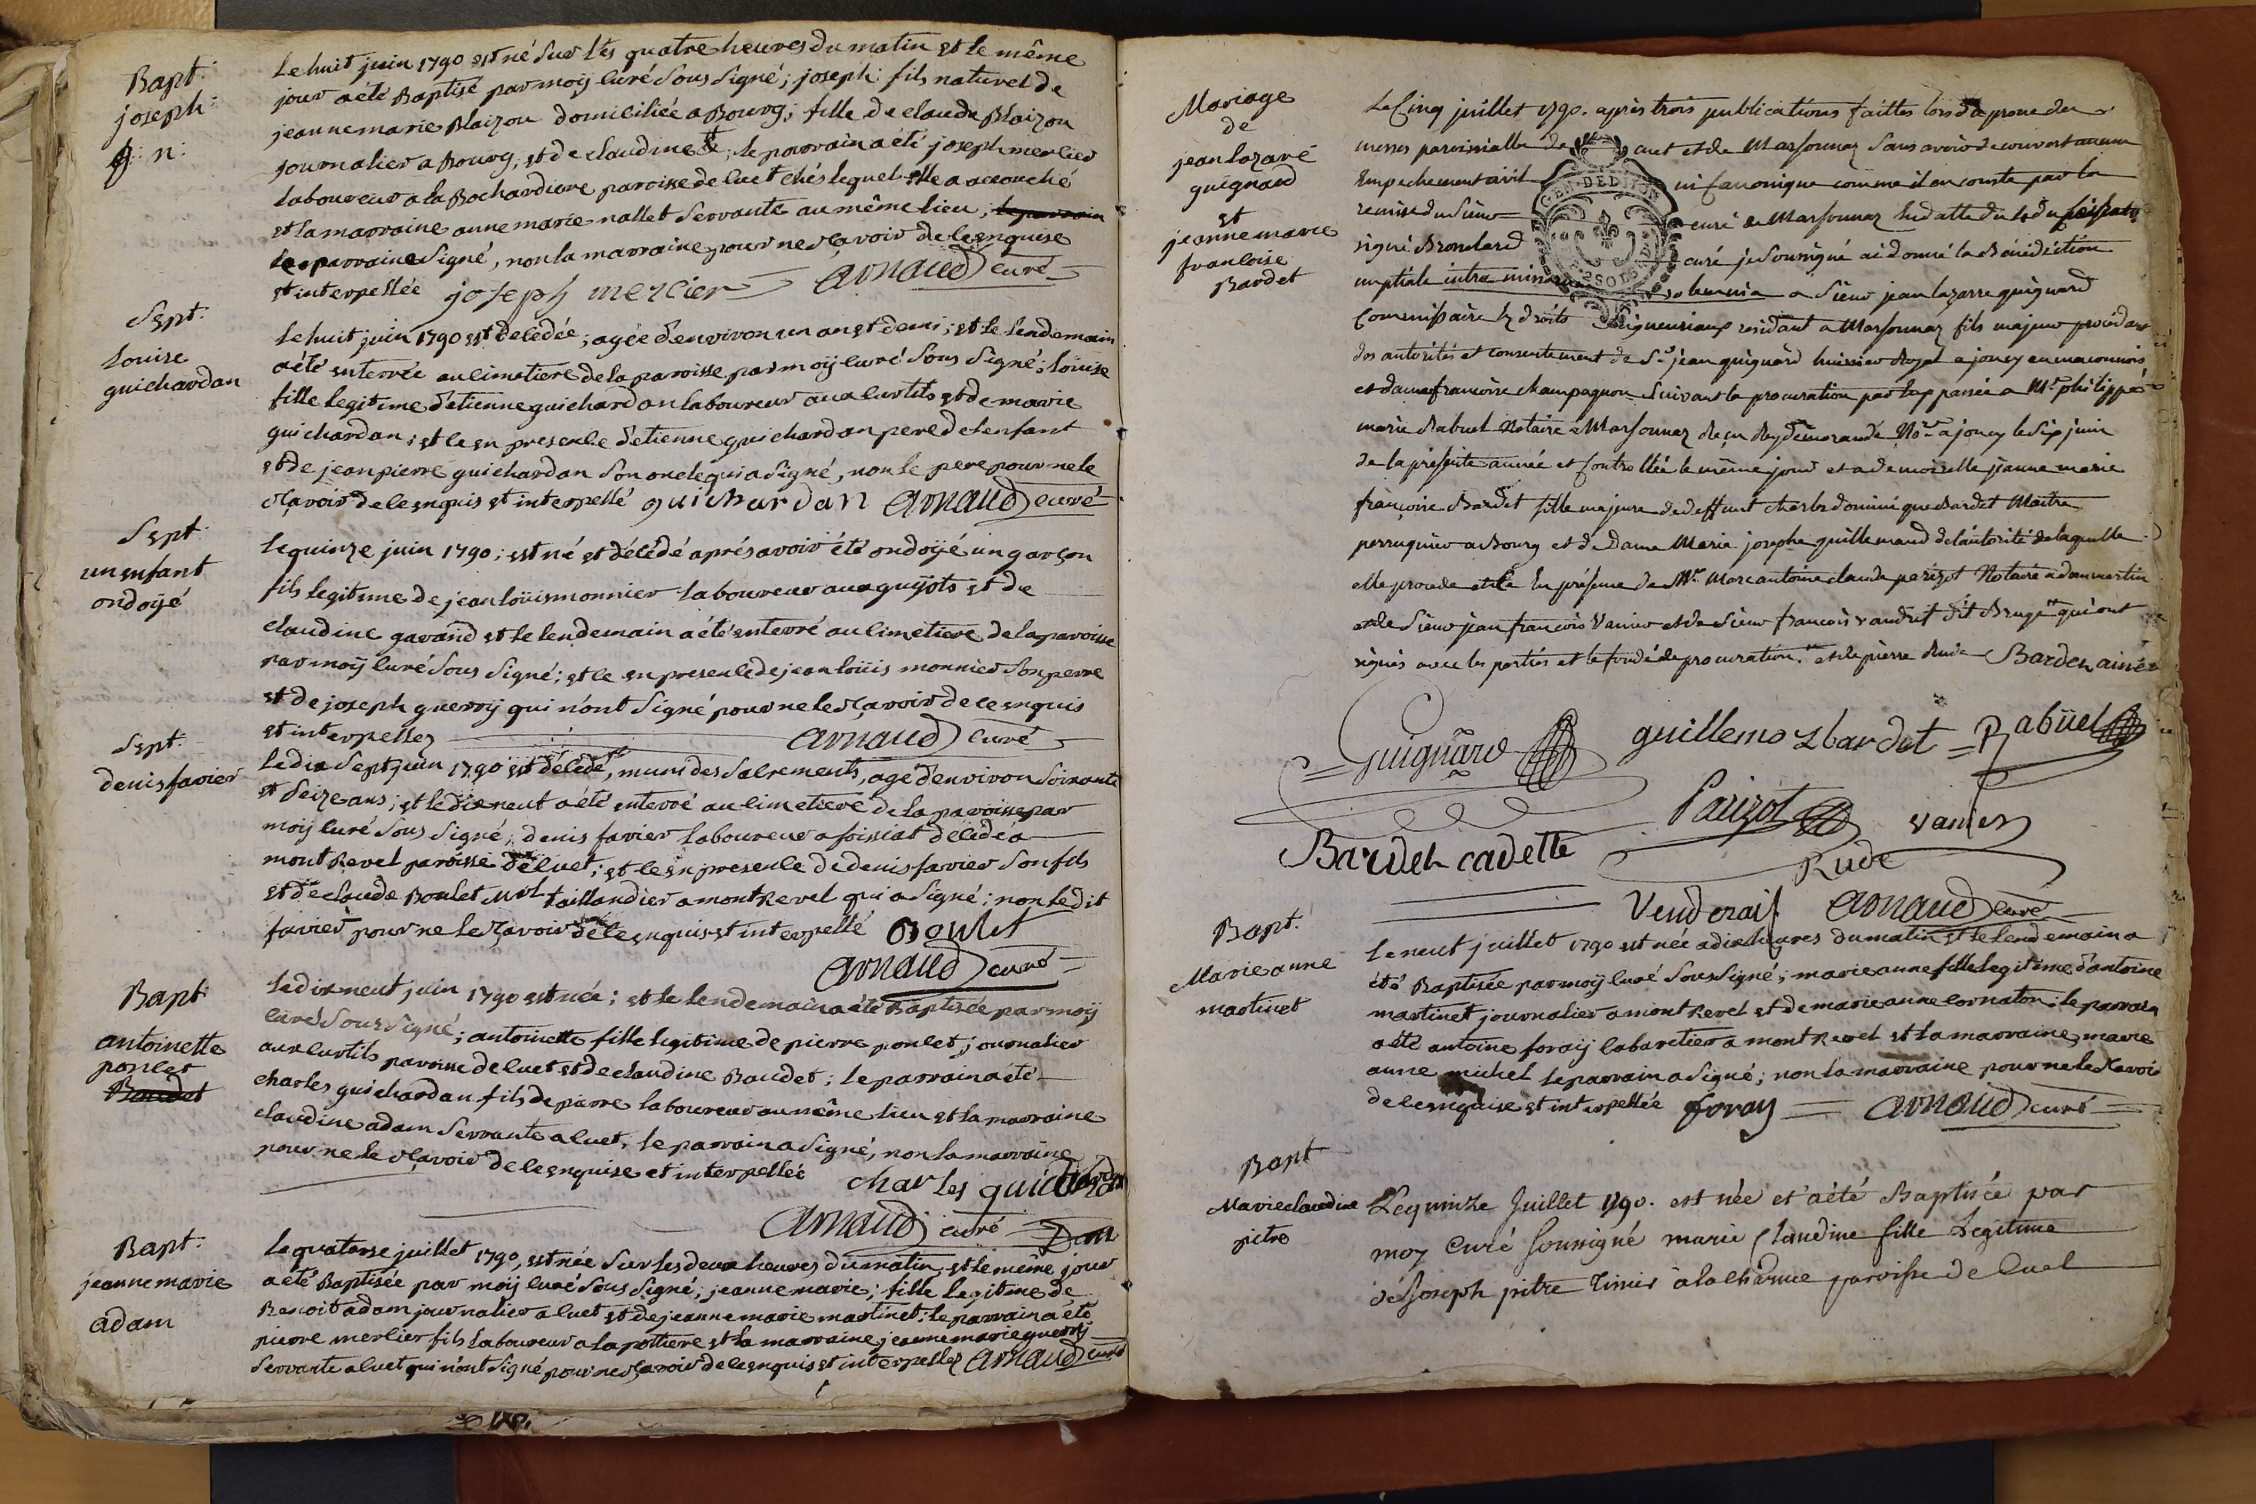 Bapt:
joseph:
n:
Le huit juin 1790 est né sur les quatre heures du matin et le même
jour a été Baptisé par moÿ curé sous signé; joseph fils naturel de
jeanne marie Blaizon domiciliée a Bourg; fille de claude Blaizon
journalier a Bourg, et de claudine; le parrain a été joseph mercier
laboureur a la Bochardiere paroisse de cuet chés lequel elle a accouché
et la marraine anne marie nallet servante au même lieu, le parrain
le parrain a signé, non la marraine pour ne sçavoir de ce enquise
et interpellée joseph mercier arnaud curé
Sept:
Louise
guichardan
Le huit juin 1790 est decedée; agée d'environ un an et demi; et le lendemain
a été enterrée au cimetiere de la paroisse par moÿ curé sous signé; louise
fille legitime d'etienne guichardan laboureur aux curtils et de marie
guichardan; et ce en presence d'etienne guichardan pere de lenfant
et de jean pierre guichardan son oncle qui a signé, non le pere pour ne le
sçavoir de ce enquis et interpellé guichardan arnaud curé
Sept:
un enfant
ondoÿé
Le quinze juin 1790; est né et décédé aprés avoir été ondoÿé un garçon
fils legitime de jean loüis monnier laboureur aux guÿots et de
claudine gavand et le lendemain a été enterré au cimetiere de la paroisse
par moÿ curé sous signé; et ce en presence de jean loüis monnier son pere
et de joseph guerrÿ qui n'ont signé pour ne le sçavoir de ce enquis
et interpellez arnaud curé
Sept:
denis favier
Le dix sept juin 1790 est décédé, muni des sacrements, agé d'environ soixante
et seize ans; et le dix neuf a été enterré au cimetiere de la paroisse par
moÿ curé sous signé; denis favier laboureur a foissiat décédé a
mont Revel paroisse de cuet; et ce en presence de denis favier son fils
et de claude Boulet taillandier a mont Revel qui a signé; non ledit
favier pour ne le sçavoir de ce enquis et interpellé Boulet
arnaud curé
Bapt
antoinette
poncet
Baudet
Le dix neuf juin 1790 est née; et le lendemain a été Baptisée par moÿ
curé sous signé; antoinette fille legitime de pierre poncet journalier
aux curtils paroisse de cuet et de claudine Baudet; le parrain a été
charles guichardan fils de pierre laboureur au même lieu et la marraine
claudine adam servante a cuet, le parrain a signé, non la marraine
pour ne le sçavoir de ce enquise et interpellée charles guichardan
arnaud curé
Bapt:
jeanne marie
adam
Le quatorse juillet 1790, est née sur les deux heures du matin, et le même jour
a été Baptisée par moÿ curé sous signé; jeanne marie; fille legitime de
Benoit adam journalier a cuet et de jeanne marie martinet; le parrain a été
pierre mercier fils laboureur a la pottiere et la marraine jeanne marie guerrÿ
servante a cuet qui n'ont signé pour ne sçavoir de ce enquis et interpellez arnaud curé
Mariage
de
jean lazare
guignard
et
jeanne marie
francoise
Bardet
Le Cinq juillet 1790. après trois publications faittes lors du prone des
messes paroissialle de cuet et de Marsonnaz sans avoir decouvert aucun
Empechement civil ni canonique comme il en conste par la
remise du Sieur curé de Marsonnaz En datte du
signé Brondard curé je soussigné ai donné la Bénédiction
nuptiale intra missarum solemnia a Sieur jean lazarre guignard
Commissaire es droits seigneuriaux residant a Marsonnaz fils majeur procédant
des autorités et consentement de Sr jean guignard huissier Royal a joncy en maconnois
et dame francoise champagnon suivant la procuration par eux passée a Mr philippe
marie Rabuel Notaire a Marsonnaz Reçu demorande Nore a joncy le six juin
de la présente année et controllée le même jour et a demoiselle jeanne marie
françoise Bardet fille majeure de deffunt charles dominique Bardet Maitre
perruquier a Bourg et de Dame Marie josephe guillemaud de l'autorité de laquelle
elle procede et ce En présence de Mr Marc antoine claude parizot Notaire a dommartin
et de Sieur jean francois Vanier et de Sieur francois vandrit dit Bruge qui ont
signés avec les parties et le fondé de procuration. et de pierre Rude Bardet ainée
Guignard guillemo Lbardet Rabüel
Parizot vanier
Bardet cadette Rude
arnaud curé
Bapt:
Marie anne
martinet
Le neuf juillet 1790 est née a dix heures du matin et le lendemain a
été Baptisée par moÿ curé sous signé; marie anne fille legitime d'antoine
martinet journalier a mont Revel et de marie anne cornaton: le parrain
a été antoine foraÿ cabaretier a mont Revel et la marraine marie
anne michel le parrain a signé; non la marraine pour ne le sçavoir
de ce enquise et interpellée foray arnaud curé
Bapt
Marie claudine
pitre
Le quinze Juillet 1790. est née et a été Baptisée par
moy Curé soussigné marie Claudine fille Legitime
de Joseph pitre à la charme paroisse de Cuet